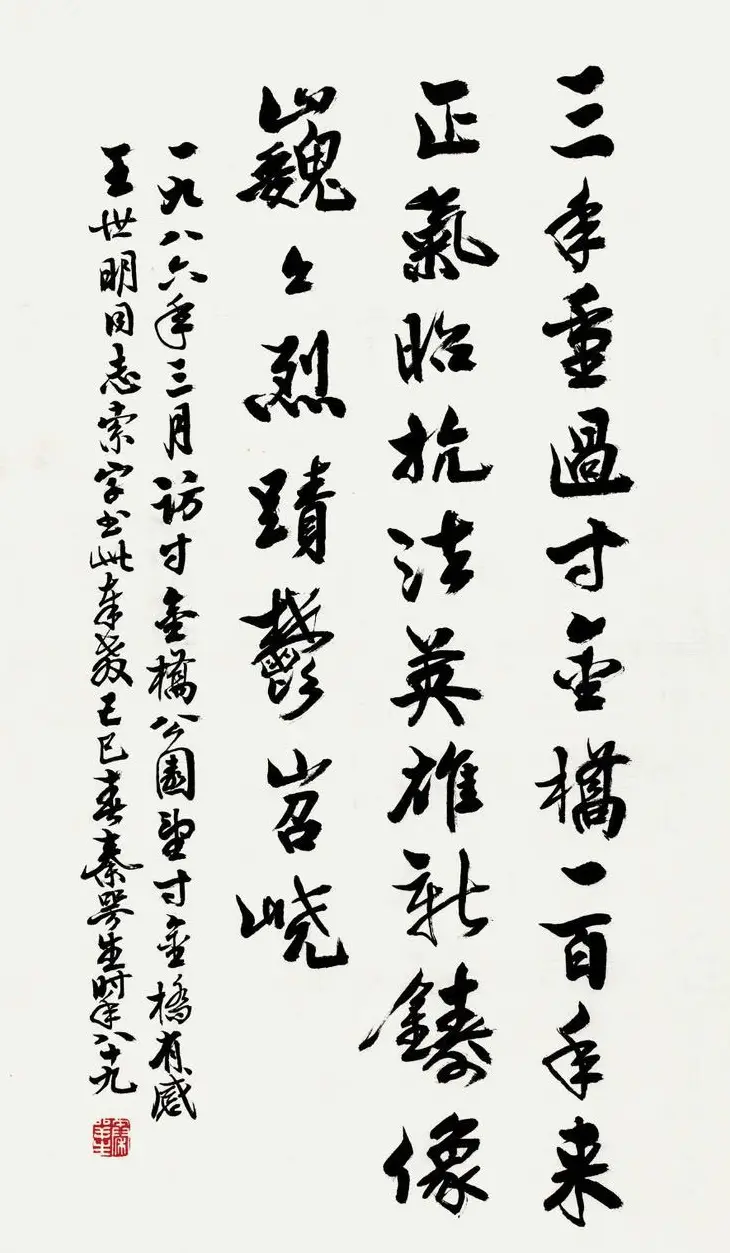 三年重過寸金橋一百年来
正氣昭抗法英雄新鑄像
巍々烈蹟鬱岧嶢
一九八六年三月访寸金橋公園望寸金橋有感
王世明同志索字书此奉教己巳春秦咢生時年八十九